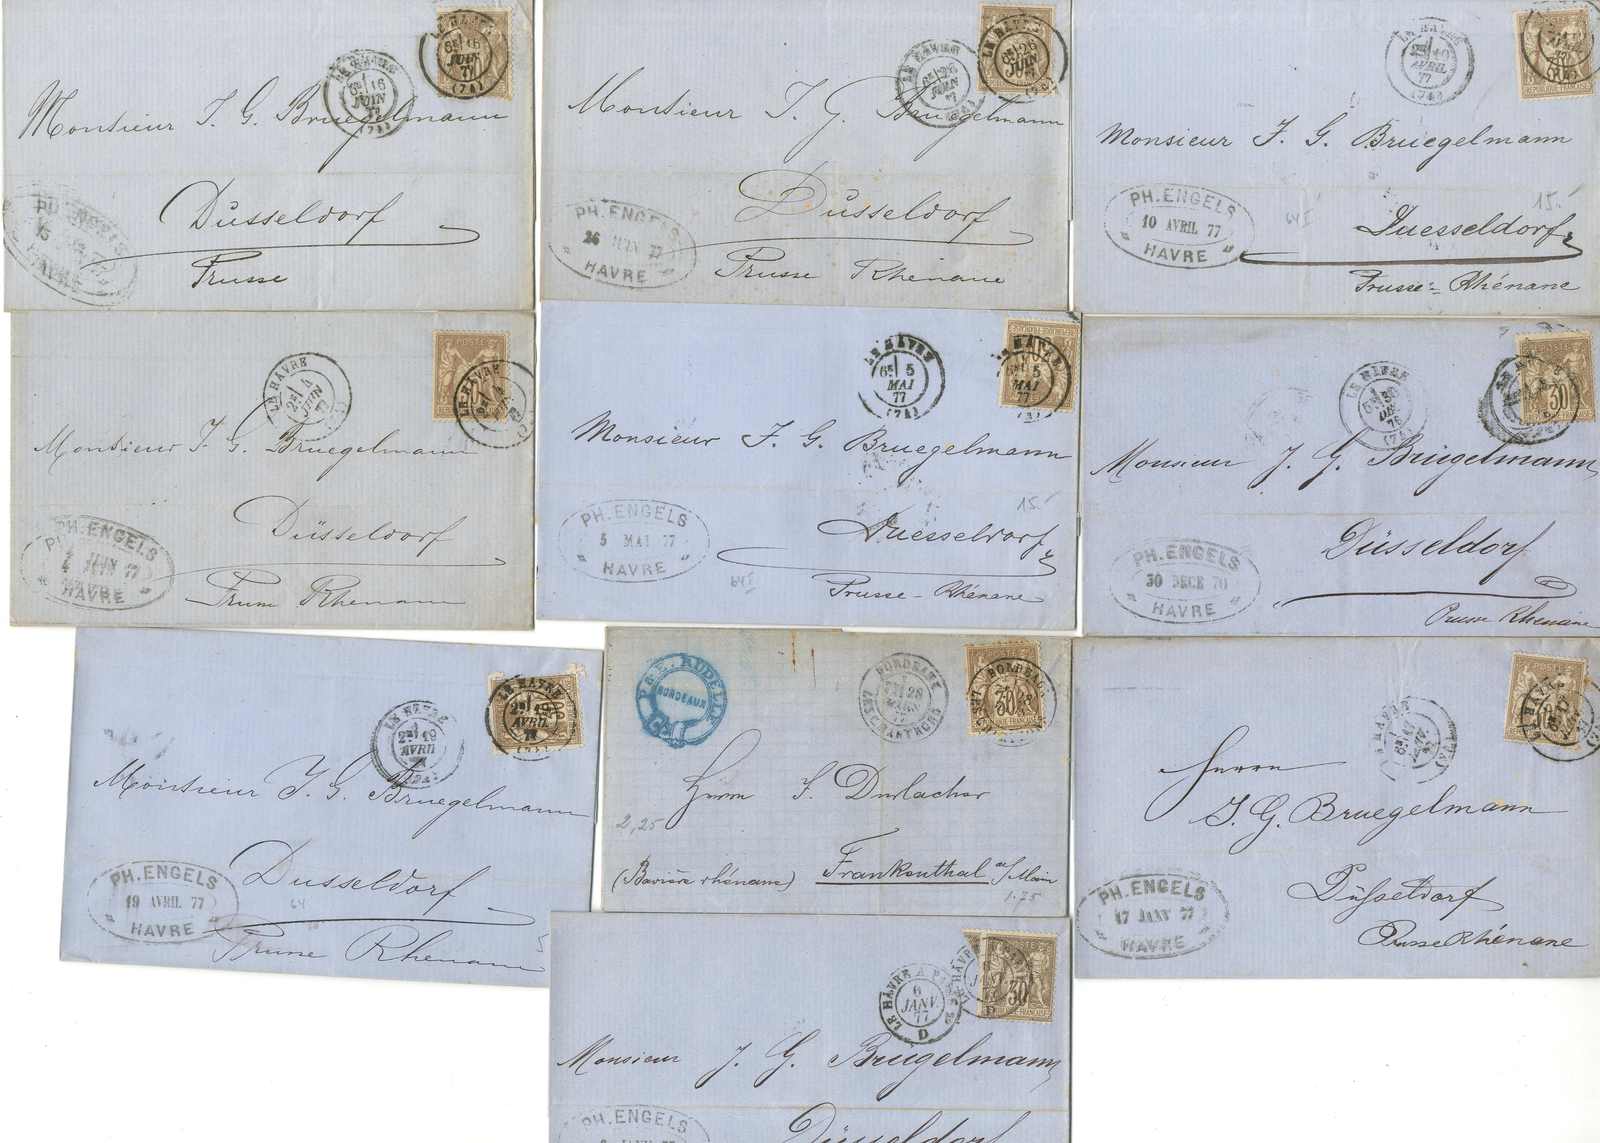 LE HAVRE
6E 16
JUIN
77
(74)
LE HAVRE
6E 16
JUIN
77
(74)
Monsieur J. G. Bruegelmann
Düsseldorf
Prusse
PH. ENGELS
HAVRE
LE HAVRE
6E 26
JUIN
77
LE HAVRE
6E 26
JUIN
Monsieur J. G. Bruegelmann
Düsseldorf
Prusse Rhénane
PH. ENGELS
26 JUIN 77
HAVRE
LE HAVRE
2E 10
AVRIL
77
(74)
RÉPUBLIQUE FRANÇAISE
Monsieur J. G. Bruegelmann
15.-
Duesseldorf
Prusse-Rhénane
PH. ENGELS
10 AVRIL 77
HAVRE
POSTE
LE HAVRE
2E 4
JUIN
77
LE HAVRE
Monsieur J. G. Bruegelmann
Düsseldorf
Prusse Rhénane
PH. ENGELS
4 JUIN 77
HAVRE
LE HAVRE
6E 5
MAI
77
(74)
LE HAVRE
5
MAI
77
Monsieur J. G. Bruegelmann
15.-
Duesseldorf
Prusse-Rhénane
PH. ENGELS
5 MAI 77
HAVRE
LE HAVRE
6E 30
DEC
76
(74)
30
Monsieur J. G. Brügelmann
Düsseldorf
Prusse Rhénane
PH. ENGELS
30 DECE 70
HAVRE
LE HAVRE
2E 19
AVRIL
LE HAVRE
2E 19
AVRIL
77
Monsieur J. G. Bruegelmann
Dusseldorf
64
Prusse Rhénane
PH. ENGELS
19 AVRIL 77
HAVRE
P & E. RUDELLE
BORDEAUX
BORDEAUX
28
MARS
77
LES CHARTRONS
BORDEAUX
30
Herrn J. Durlacher
2,25
(Bavière rhénane) Frankenthal a/Main
1.25
LE HAVRE
6E 17
JANV.
77
LE HAVRE
Herrn
J. G. Bruegelmann
Düsseldorf
Prusse Rhénane
PH. ENGELS
17 JANV 77
HAVRE
LE HAVRE A PARIS
6
JANV.
77
D
POSTE
30
Monsieur J. G. Bruegelmann
Düsseldorf
PH. ENGELS